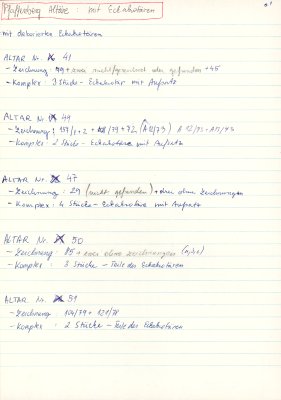 Pfaffenberg Altäre: mit Eckakrotären
mit dekorierten Eckakrotären
ALTAR Nr. 41
- Zeichnung: + 45
- Komplex: 3 Stücke - Eckakrotär mit Aufsatz
ALTAR Nr. 44
- Zeichnung: 137/1+2 + /79 + 72 (A 12/73)
- Komplex: 2 Stücke - Eckakrotäre mit Aufsatz
ALTAR Nr. 47
- Zeichnung: 29 (nicht gefunden) + drei ohne Zeichnungen
- Komplex: 4 Stücke - Eckakrotäre mit Aufsatz
ALTAR Nr. 50
- Zeichnung: 85 + zwei ohne Zeichnungen
- Komplex: 3 Stücke - Teile des Eckakrotären
ALTAR Nr. 51
- Zeichnung: 104/79 + 121/78
- Komplex: 2 Stücke - Teile des Eckakrotären